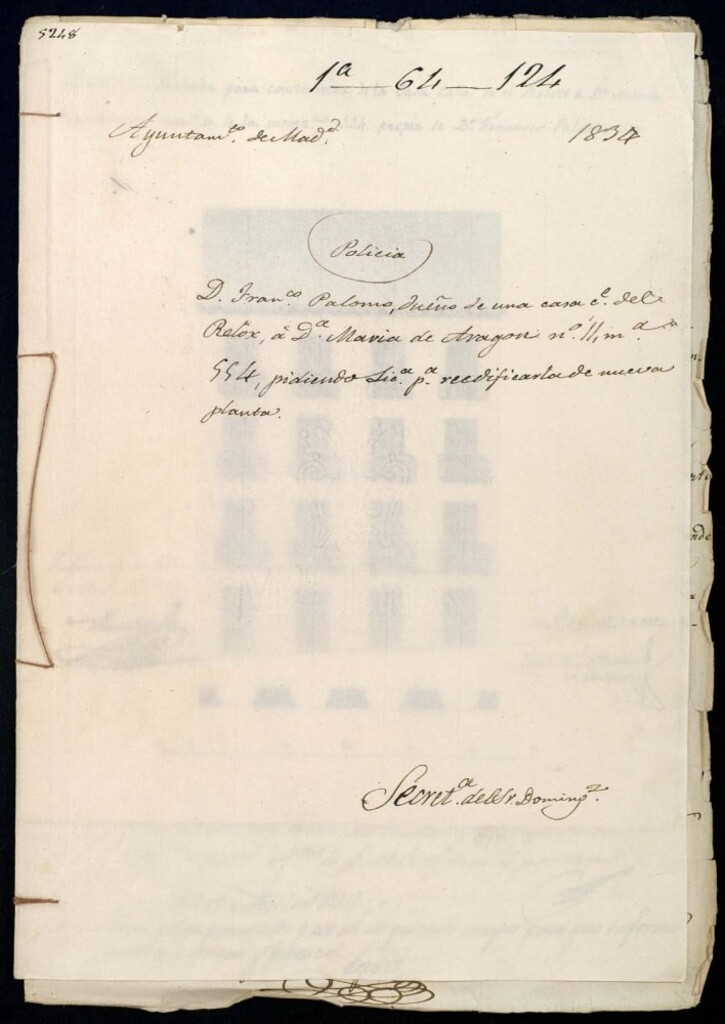 5248
1ª — 64 — 124
Ayuntam.to de Mad.d 1834
Policia
D. Fran.co Palomo, dueño de una casa c.e del
Relox, á D.a Maria de Aragon n.o 11, m.a
554, pidiendo Lic.a p.a reedificarla de nueva
planta.
Secret.a del Sr. Doming.z